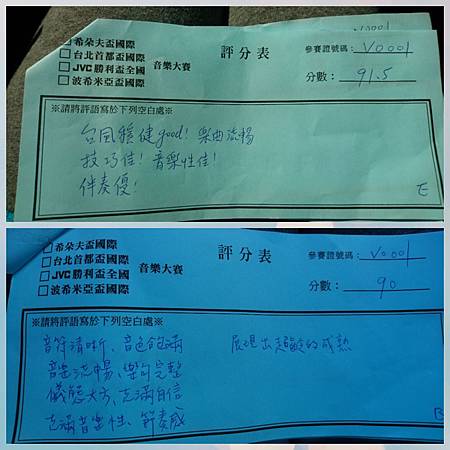 V0001
□希朵夫盃國際
□台北首都盃國際
□JVC勝利盃全國
□波希米亞盃國際
音樂大賽
評分表
參賽證號碼：V0001
分數：91.5
※請將評語寫於下列空白處※
台風穩健good! 樂曲流暢
技巧佳! 音樂性佳!
伴奏優!
E
□希朵夫盃國際
□台北首都盃國際
□JVC勝利盃全國
□波希米亞盃國際
音樂大賽
評分表
參賽證號碼：V0001
分數：90
※請將評語寫於下列空白處※
音符清晰、音色飽滿
音樂流暢、樂句完整
儀態大方、充滿自信
充滿音樂性、節奏感
展現出超齡的成熟
B